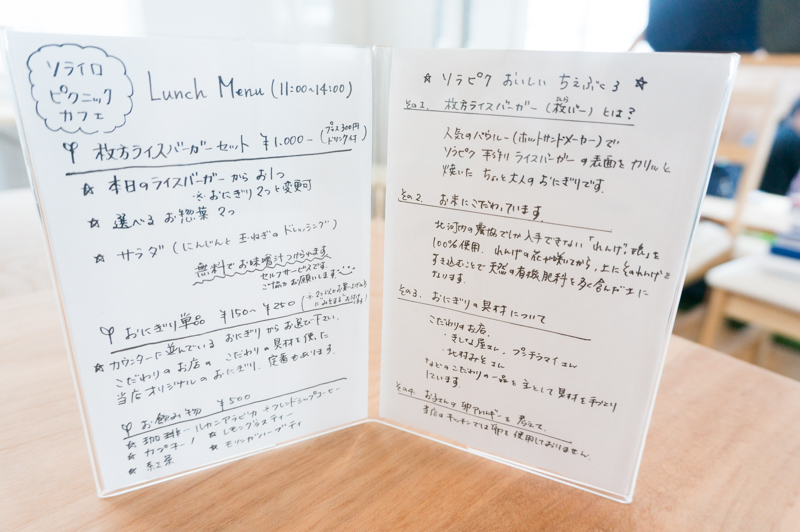 ソライロ
ピクニック
カフェ
Lunch Menu (11:00~14:00)
枚方ライスバーガーセット ¥1.000- (プラス300円 ドリンク付)
☆ 本日のライスバーガーから お1つ
※おにぎり 2つと変更可
☆ 選べる お惣菜 2つ
☆ サラダ (にんじんと 玉ねぎの ドレッシング)
無料でお味噌汁つけられます
セルフサービスです
ご協力お願いします
おにぎり単品 ¥150~ ¥250
☆ カウンターに並んでいる おにぎりからお選び下さい。
こだわりのお店の こだわりの具材を使った
当店オリジナルのおにぎり、定番もあります。
お飲み物 ¥500
☆ 珈琲 ールカンアラビカ +フレンドシップコーヒー
☆ カプチーノ ☆ レモングラスティー
☆ 紅茶 ☆ モリンガハーブティ
☆ ソラピク おいしい ちえぶくろ ☆
その1. 枚方ライスバーガー (枚バー) とは?
人気のバウルー(ホットサンドメーカー)で
ソラピク 手作り ライスバーガーの表面を カリッと
焼いた ちょっと大人の おにぎりです。
その2. お米にこだわっています。
北河内の農協でしか入手できない「れんげっ娘」を
100%使用。れんげの花が咲いてから、土にそのれんげを
すき込むことで 天然の有機肥料を多く含んだ土に
なります。
その3. おにぎりの具材について
こだわりのお店。
・きしな屋さん、プッチラマイさん
・北村みそさん
などのこだわりの一品を 主として具材を手づくり
しています。
その4. お子さんの 卵アレルギーを考えて、
当店のキッチンでは卵を使用しておりません。